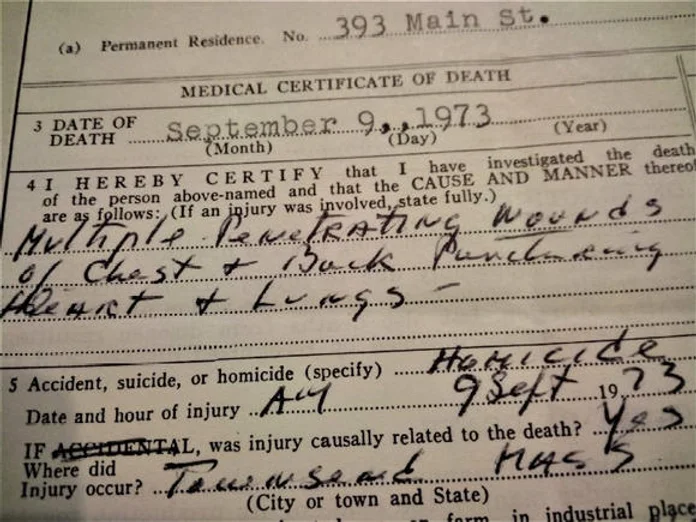 393 Main St.
(a) Permanent Residence. No.
MEDICAL CERTIFICATE OF DEATH
3 DATE OF DEATH September 9, 1973
(Month) (Day) (Year)
4 I HEREBY CERTIFY that I have investigated the death
of the person above-named and that the CAUSE AND MANNER thereof
are as follows: (If an injury was involved, state fully.)
Multiple Penetrating Wounds
of Chest + Back Puncturing
Heart + Lungs -
5 Accident, suicide, or homicide (specify) Homicide
Date and hour of injury AM 9 Sept 1973
IF ACCIDENTAL, was injury causally related to the death? Yes
Where did
Injury occur? Townsend Mass
(City or town and State)
or farm, in industrial place